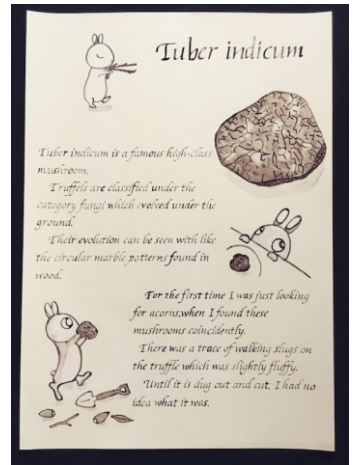 Tuber indicum
Tuber indicum is a famous high-class
mushroom.
Truffels are classified under the
category fungi which evolved under the
ground.
Their evolution can be seen with like
the circular marble patterns found in
wood.
For the first time I was just looking
for acorns,when I found these
mushrooms coincidently.
There was a trace of walking slugs on
the truffle which was slightly fluffy.
Until it is dug out and cut, I had no
idea what it was.